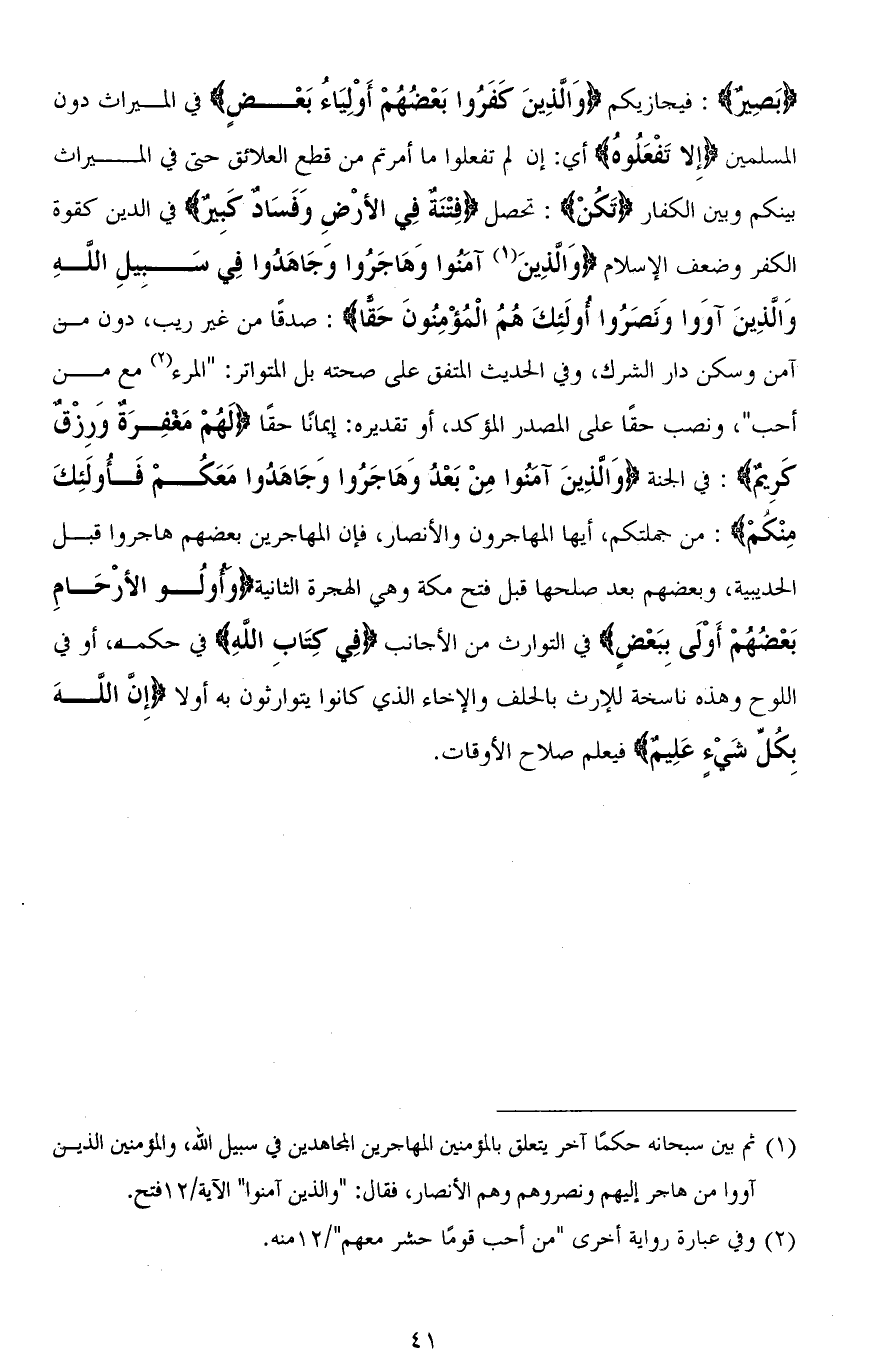 ﴿بَصِيرٌ﴾ : فيجازيكم ﴿وَالَّذِينَ كَفَرُوا بَعْضُهُمْ أَوْلِيَاءُ بَعْــــضٍ﴾ في المـــيراث دون
المسلمين ﴿إِلا تَفْعَلُوهُ﴾ أي: إن لم تفعلوا ما أمرتم من قطع العلائق حتى في المــــيراث
بينكم وبين الكفار ﴿تَكُنْ﴾ : تحصل ﴿فِتْنَةٌ فِي الأرْضِ وَفَسَادٌ كَبِيرٌ﴾ في الدين كقوة
الكفر وضعف الإسلام ﴿وَالَّذِينَ(١) آمَنُوا وَهَاجَرُوا وَجَاهَدُوا فِي سَـــبِيلِ اللَّـــهِ
وَالَّذِينَ آوَوا وَنَصَرُوا أُولَئِكَ هُمُ الْمُؤْمِنُونَ حَقًّا﴾ : صدقًا من غير ريب، دون مـن
آمن وسكن دار الشرك، وفي الحديث المتفق على صحته بل المتواتر: "المرء(٢) مع مـــن
أحب"، ونصب حقًا على المصدر المؤكد، أو تقديره: إيمانًا حقًا ﴿لَهُمْ مَغْفِـرَةٌ وَرِزْقٌ
كَرِيمٌ﴾ : في الجنة ﴿وَالَّذِينَ آمَنُوا مِنْ بَعْدُ وَهَاجَرُوا وَجَاهَدُوا مَعَكُـــمْ فَـــأُولَئِكَ
مِنْكُمْ﴾ : من جملتكم، أيها المهاجرون والأنصار، فإن المهاجرين بعضهم هاجروا قبـــل
الحديبية، وبعضهم بعد صلحها قبل فتح مكة وهي الهجرة الثانية﴿وَأُولُـــو الأرْحَـــامِ
بَعْضُهُمْ أَوْلَى بِبَعْضٍ﴾ في التوارث من الأجانب ﴿فِي كِتَابِ اللَّهِ﴾ في حكمـه، أو في
اللوح وهذه ناسخة للإرث بالحلف والإخاء الذي كانوا يتوارثون به أولا ﴿إِنَّ اللَّـــهَ
بِكُلِّ شَيْءٍ عَلِيمٌ﴾ فيعلم صلاح الأوقات.
(١) ثم بين سبحانه حكمًا آخر يتعلق بالمؤمنين المهاجرين المجاهدين في سبيل الله، والمؤمنين الذيـن
آووا من هاجر إليهم ونصروهم وهم الأنصار، فقال: "والذين آمنوا" الآية/١٢فتح.
(٢) وفي عبارة رواية أخرى "من أحب قومًا حشر معهم"/١٢منه.
٤١